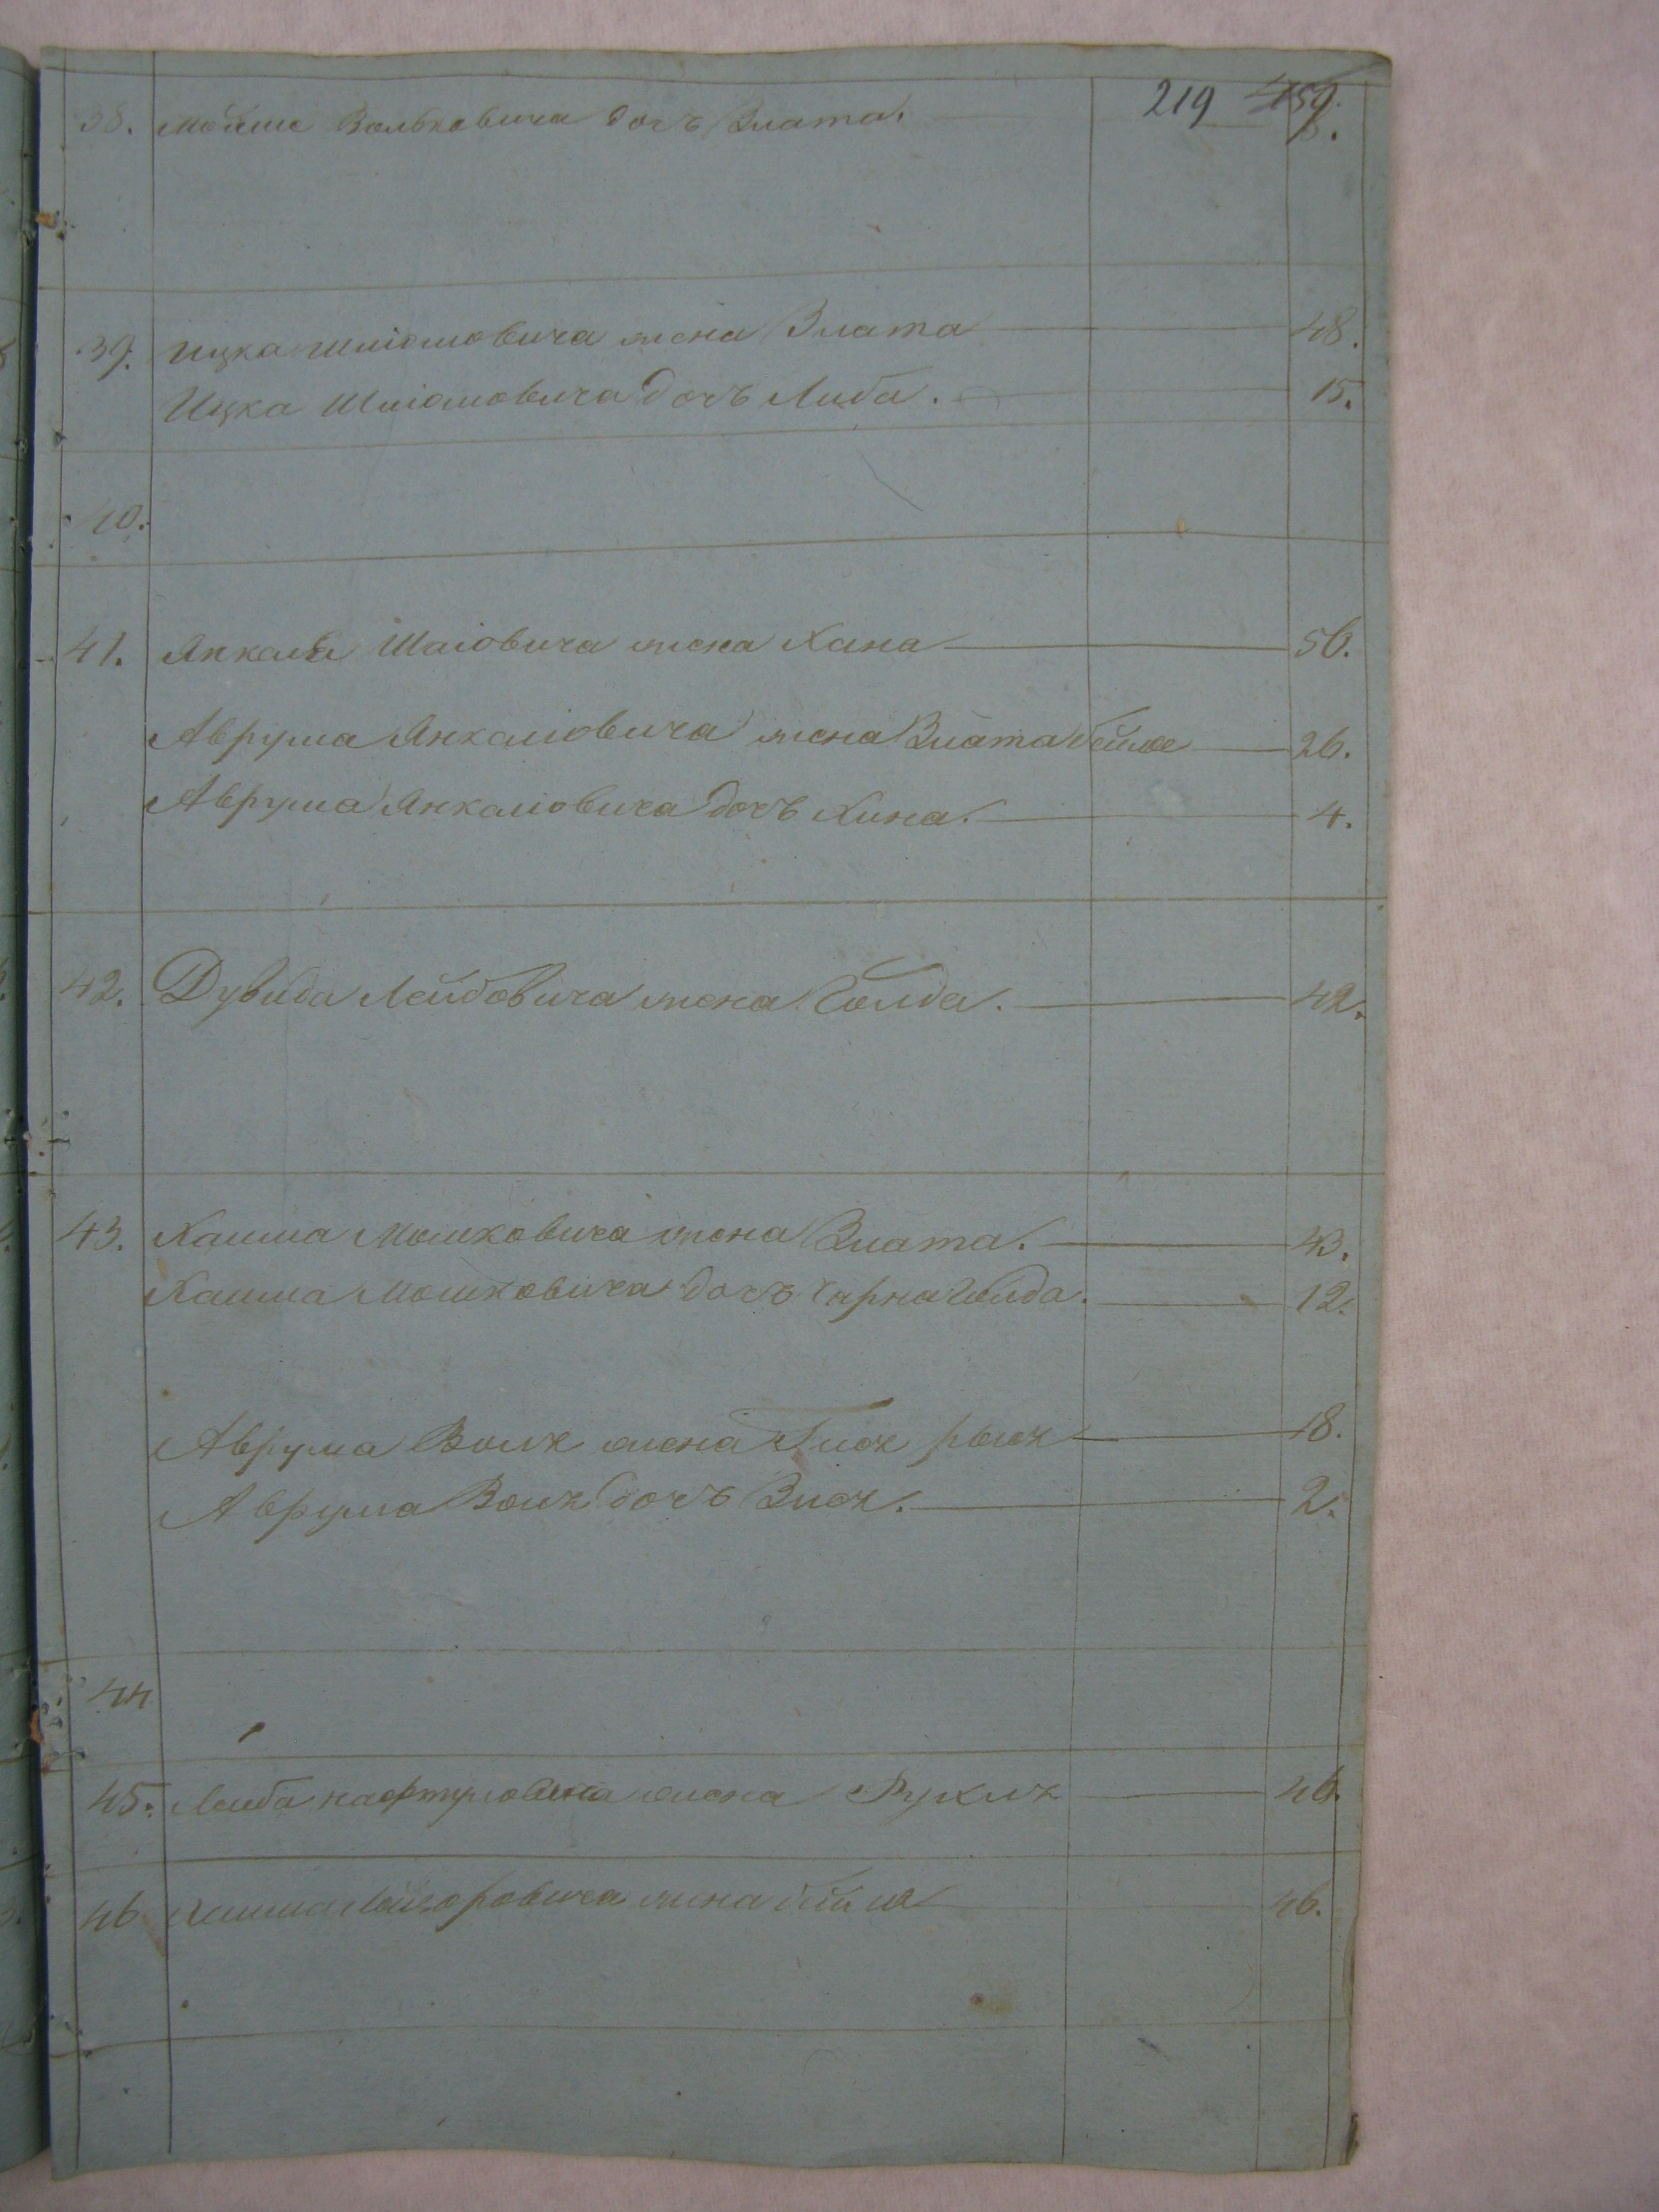 219 459.
38. Мовше Вольковича дочь Злата.
39. Ицка Шліомовича жена Злата 48.
Ицка Шліомовича дочь Либа. 15.
40.
41. Янкеля Шаіовича жена Хана 56.
Аврума Янкеліовича жена Злата Бейля 26.
Аврума Янкеліовича дочь Хина. 4.
42. Дувида Лейбовича жена Голда. 42.
43. Хаима Мошковича жена Злата. 43.
Хаима Мошковича дочь Чарна Голда. 12.
Аврума Волх жена рыся 18.
Аврума Волх дочь 2.
44
45. Лейба Нафтуловича жена Рухля 46.
46 Хаима жена Бейля 46.